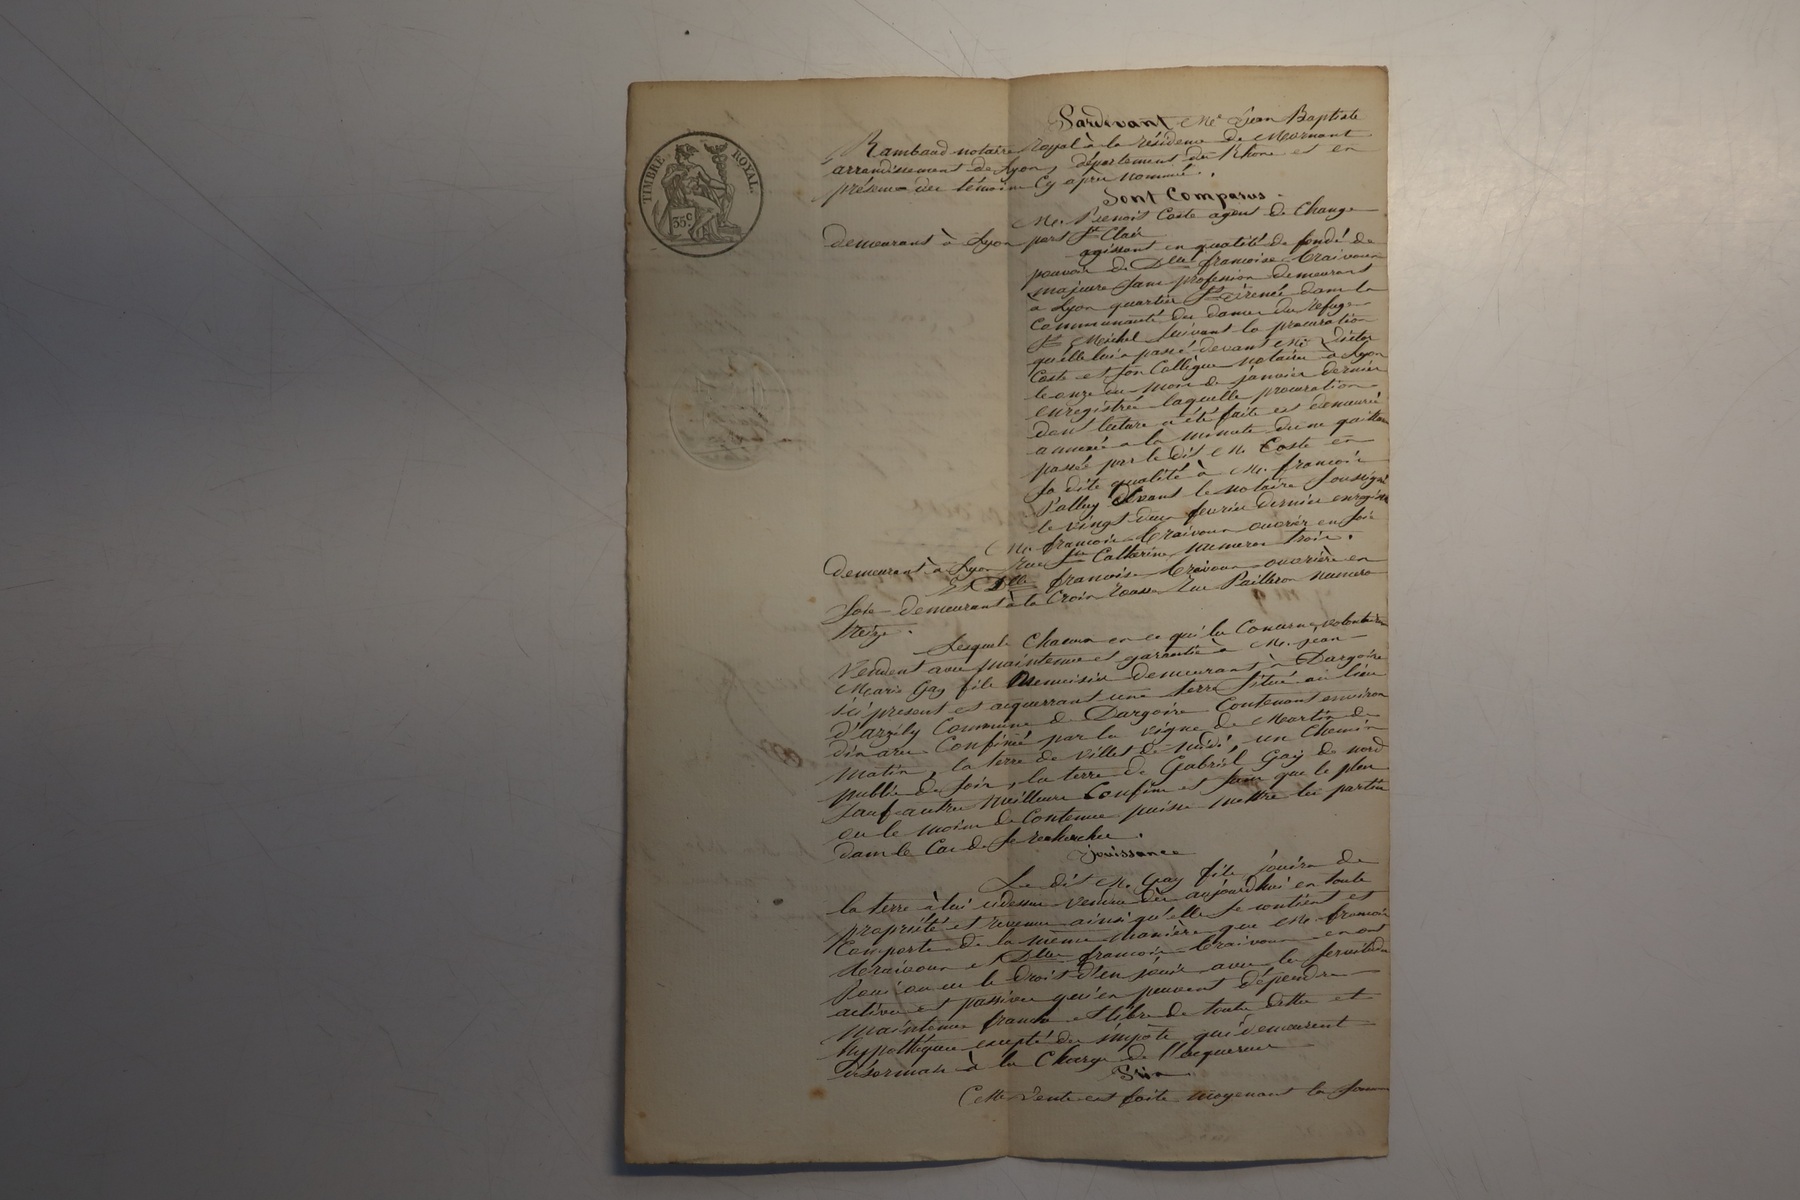 TIMBRE ROYAL.
35 c
Pardevant Me Jean Baptiste
Rambaud notaire Royal à la résidence de Mornant
arrondissement de Lyon, département du Rhône et en
présence des témoins Cy après nommés.
Sont Comparus
Mr. Benoit Coste agent de Change
demeurant à Lyon port St Clair
agissant en qualité de fondé de
pouvoir de Dlle françoise
majeure sans profession demeurant
à Lyon quartier St irénée dans la
Communauté des dames du refuge
St Michel suivant la procuration
qu'elle lui a passé devant Me
Coste et son Collègue notaires à Lyon
le onze du mois de janvier dernier
enregistrée laquelle procuration
dont lecture a été faite est demeurée
annexée a la minute d'une quittance
passée par le dit Mr. Coste en
sa dite qualité à Mr. françois
devant le notaire soussigné
le vingt deux fevrier dernier enregistré
Mr. françois ouvrier en soie
demeurant à Lyon rue Ste Catherine numero trois.
Et Dlle françoise ouvrière en
soie demeurant à la Croix Rousse rue Pailleron numero
treize.
Lesquels Chacun en ce qui les Concerne volontairement
Vendent avec maintenue et garantie à Mr. jean
Marie Gay fils Menuisier demeurant à Dargoire
ici présent et acquerrant une terre située au lieu
d'arzely Commune de Dargoire Contenant environ
dix ares Confinée par la vigne de Martin de
matin, la terre de Villet de midi, un Chemin
public de soir, la terre de Gabriel Gay de nord
sauf autres meilleurs Confins et sans que le plus
ou le moins de Contenue puisse mettre les parties
dans le Cas de se rechercher.
Jouissance
Le dit Mr. Gay fils jouira de
la terre à lui cidessus vendue dès aujourdhui en toute
propriété et revenus ainsi qu'elle se contient et
Comporte de la même manière que Mr. françois
et Dlle françoise en ont
joui ou eu le droit d'en jouir avec les servitudes
actives et passives qui en peuvent dépendre
maintenue franche et libre de toute dette et
hypothèque excepté des impôts qui demeurent
désormais à la Charge de l'acquereur
Prix
Cette vente est faite moyenant la somme